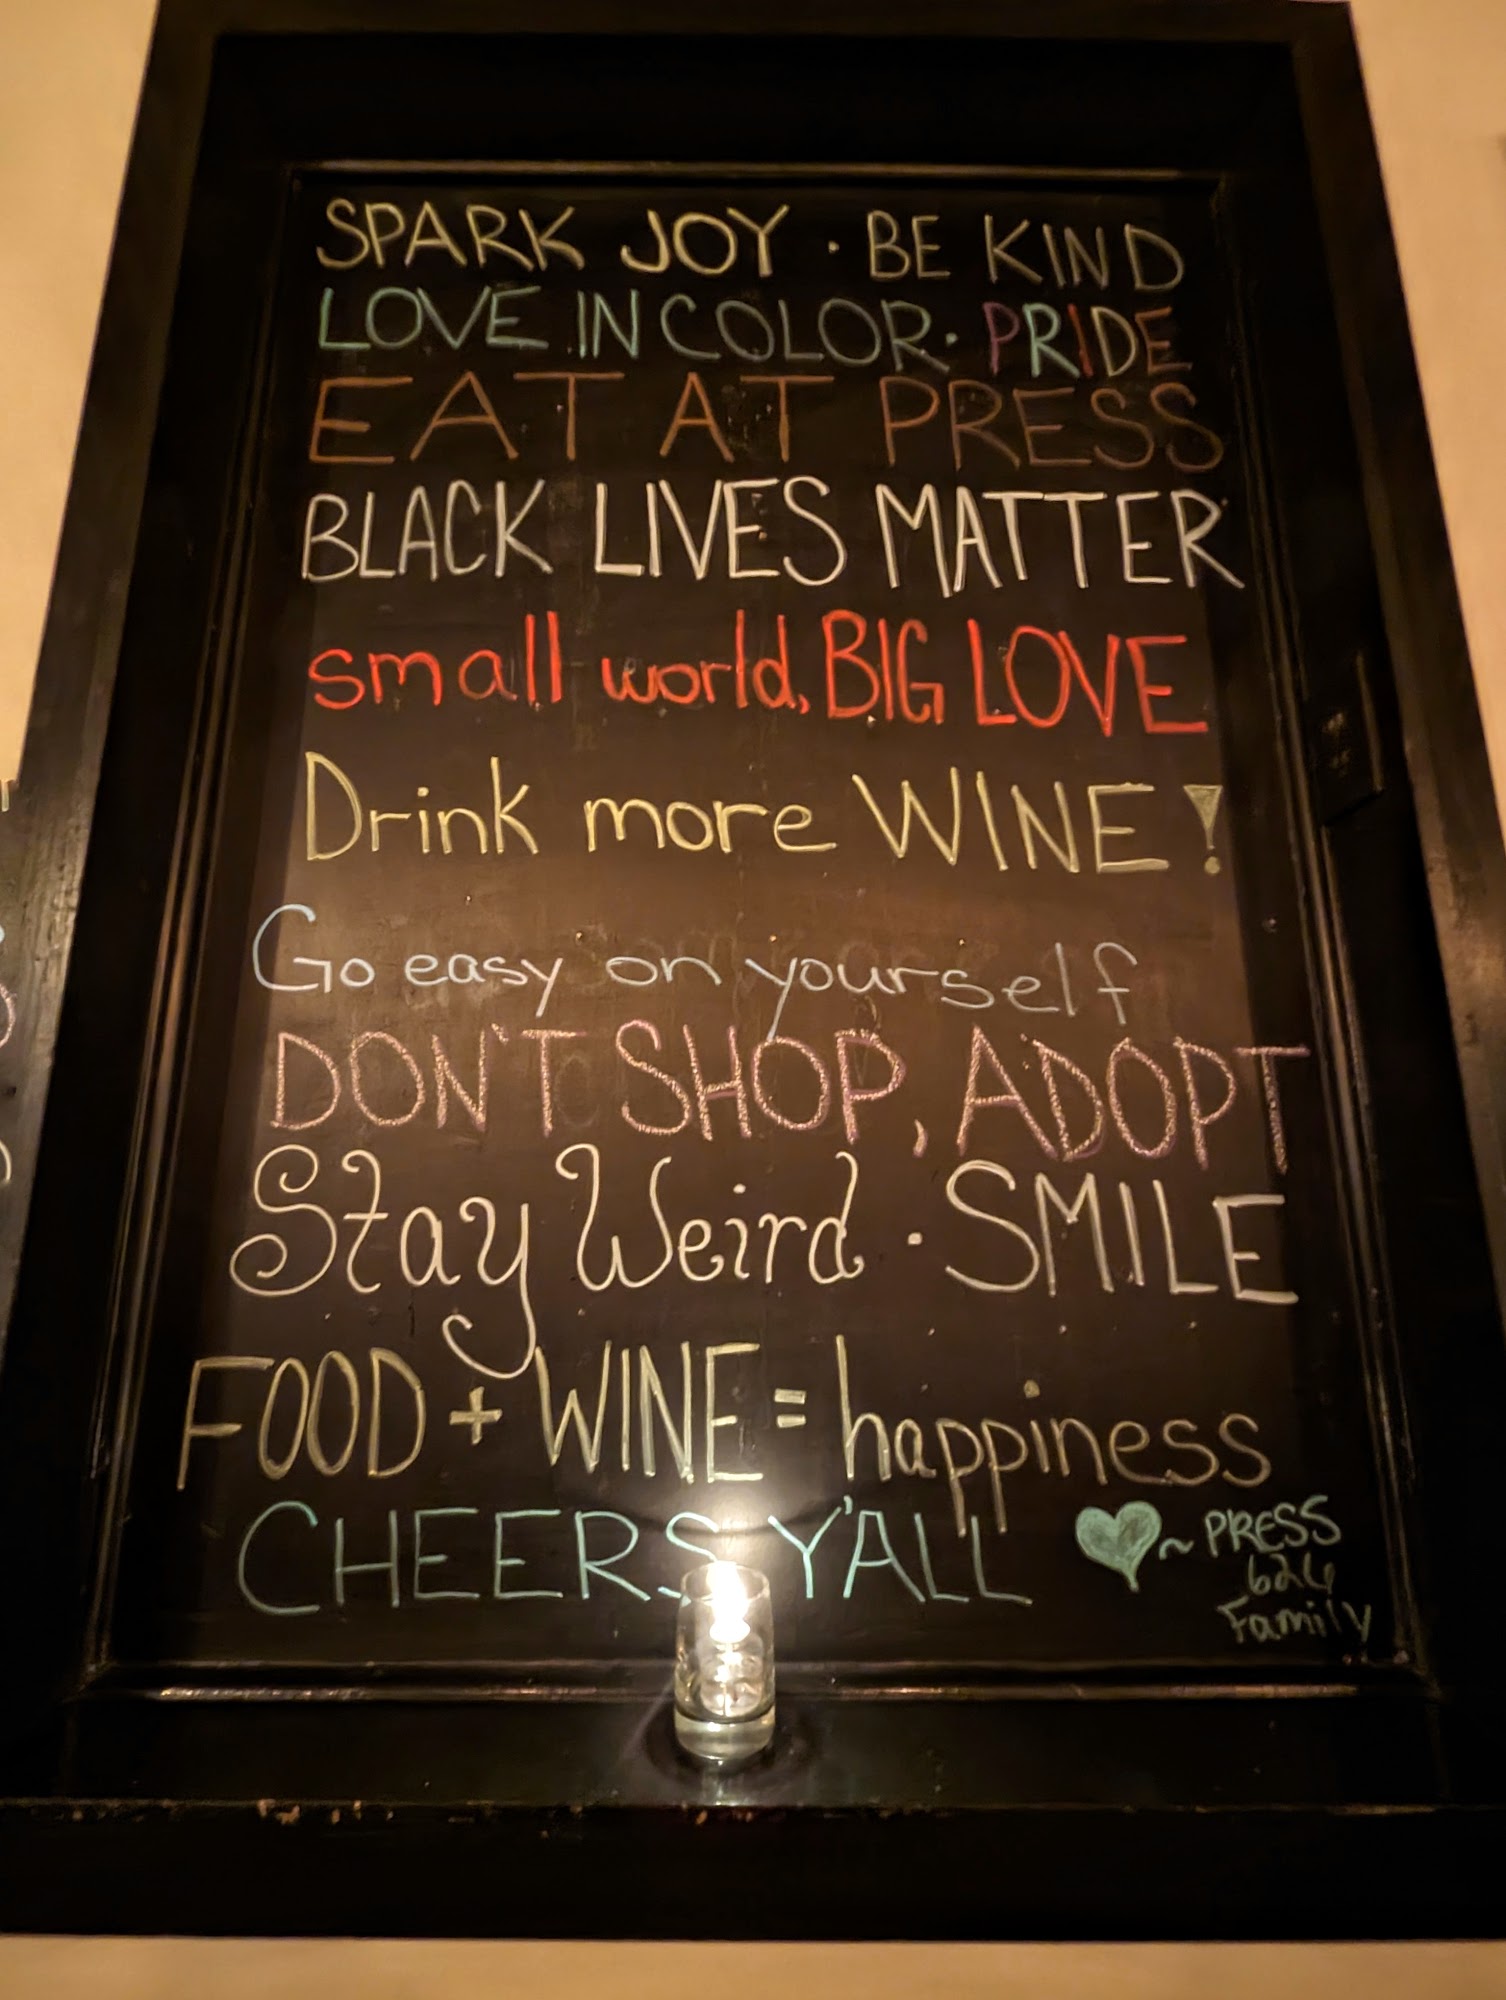 SPARK JOY · BE KIND
LOVE IN COLOR · PRIDE
EAT AT PRESS
BLACK LIVES MATTER
small world, BIG LOVE
Drink more WINE!
Go easy on yourself
DON'T SHOP, ADOPT
Stay Weird · SMILE
FOOD + WINE = happiness
CHEERS Y'ALL
~ PRESS
626
Family